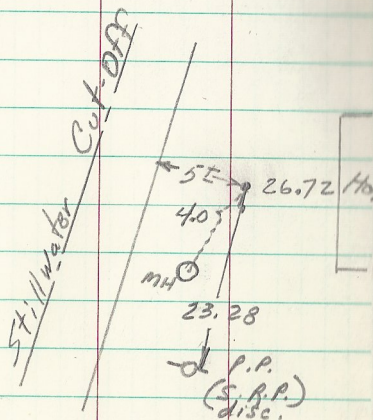 Stillwater Cut-Off
5±
26.72
Ho
4.0
MH
23.28
P.P.
(S.R.P.)
disc.